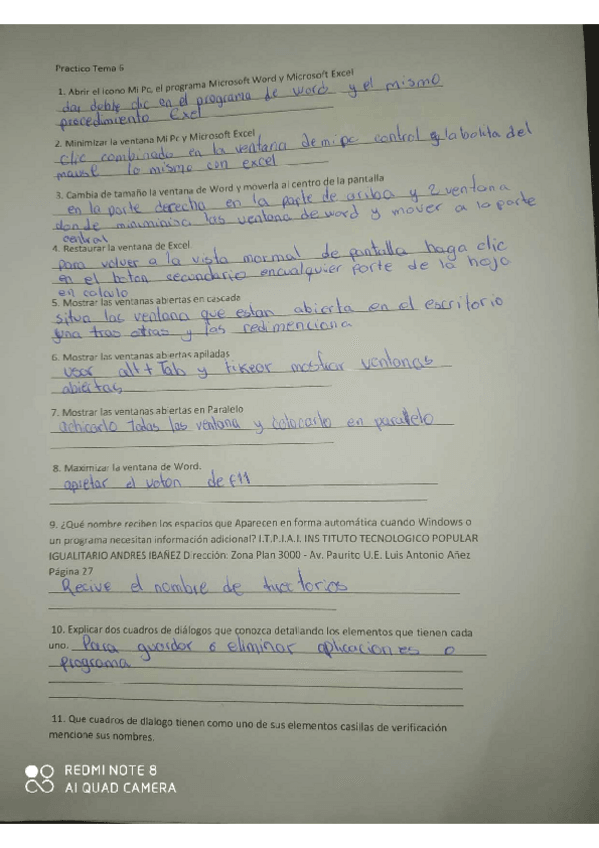 Practico Tema 6
1. Abrir el icono Mi Pc, el programa Microsoft Word y Microsoft Excel
dar doble clic en el programa de word y el mismo
procedimiento Exel
2. Minimizar la ventana Mi Pc y Microsoft Excel
clic combinado en la ventana de mi pc control y la bolita del
mause lo mismo con excel
3. Cambia de tamaño la ventana de Word y moverla al centro de la pantalla
en la parte derecha en la parte de ariba y 2 ventana
donde las ventana de word y mover a la parte
central
4. Restaurar la ventana de Excel
para volver a la vista normal de pantalla haga clic
en el boton secundario encualquier parte de la hoja
en calculo
5. Mostrar las ventanas abiertas en cascade
situa las ventana que estan abierta en el escritorio
una tras otras y las redimenciona
6. Mostrar las ventanas abiertas apiladas
usar allt + Tab y ventanas
abiertas
7. Mostrar las ventanas abiertas en Paralelo
achicarlo todas las ventana y colocarlo en paralelo
8. Maximizar la ventana de Word.
apretar el voton de f11
9. ¿Qué nombre reciben los espacios que Aparecen en forma automática cuando Windows o
un programa necesitan información adicional? I.T.P.I.A.I. INS TITUTO TECNOLOGICO POPULAR
IGUALITARIO ANDRES IBAÑEZ Dirección: Zona Plan 3000 - Av. Paurito U.E. Luis Antonio Añez
Página 27
Recive el nombre de
10. Explicar dos cuadros de diálogos que conozca detallando los elementos que tienen cada
uno. Para guardar o eliminar aplicaciones o
programa
11. Que cuadros de dialogo tienen como uno de sus elementos casillas de verificación
mencione sus nombres.
REDMI NOTE 8
AI QUAD CAMERA